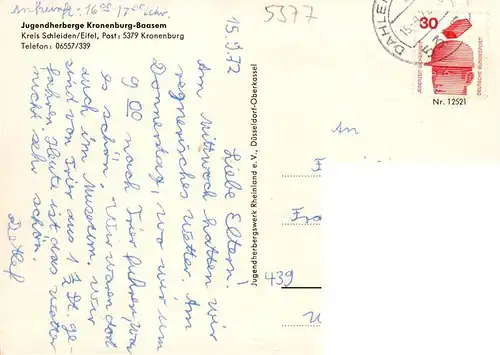 Ankunft: 16⁰⁰-17⁰⁰ Uhr.
5377
Jugendherberge Kronenburg-Baasem
Kreis Schleiden/Eifel, Post: 5379 Kronenburg
Telefon: 06557/339
15.9.72
Liebe Eltern!
Am Mittwoch hatten wir
regnerisches Wetter. Am
Donnerstag, wo wir um
9⁰⁰ nach Trier fuhren, war
es schön. Wir waren dort
auch im Museum. Wir
sind von Trier aus 1 ½ St. ge-
fahren. Heute ist das Wetter
nicht sehr schön.
Detlef
Jugendherbergswerk Rheinland e.V., Düsseldorf-Oberkassel
DAHLEM
30
JEDERZEIT SICHERHEIT
DEUTSCHE BUNDESPOST
Nr. 12521
An
439